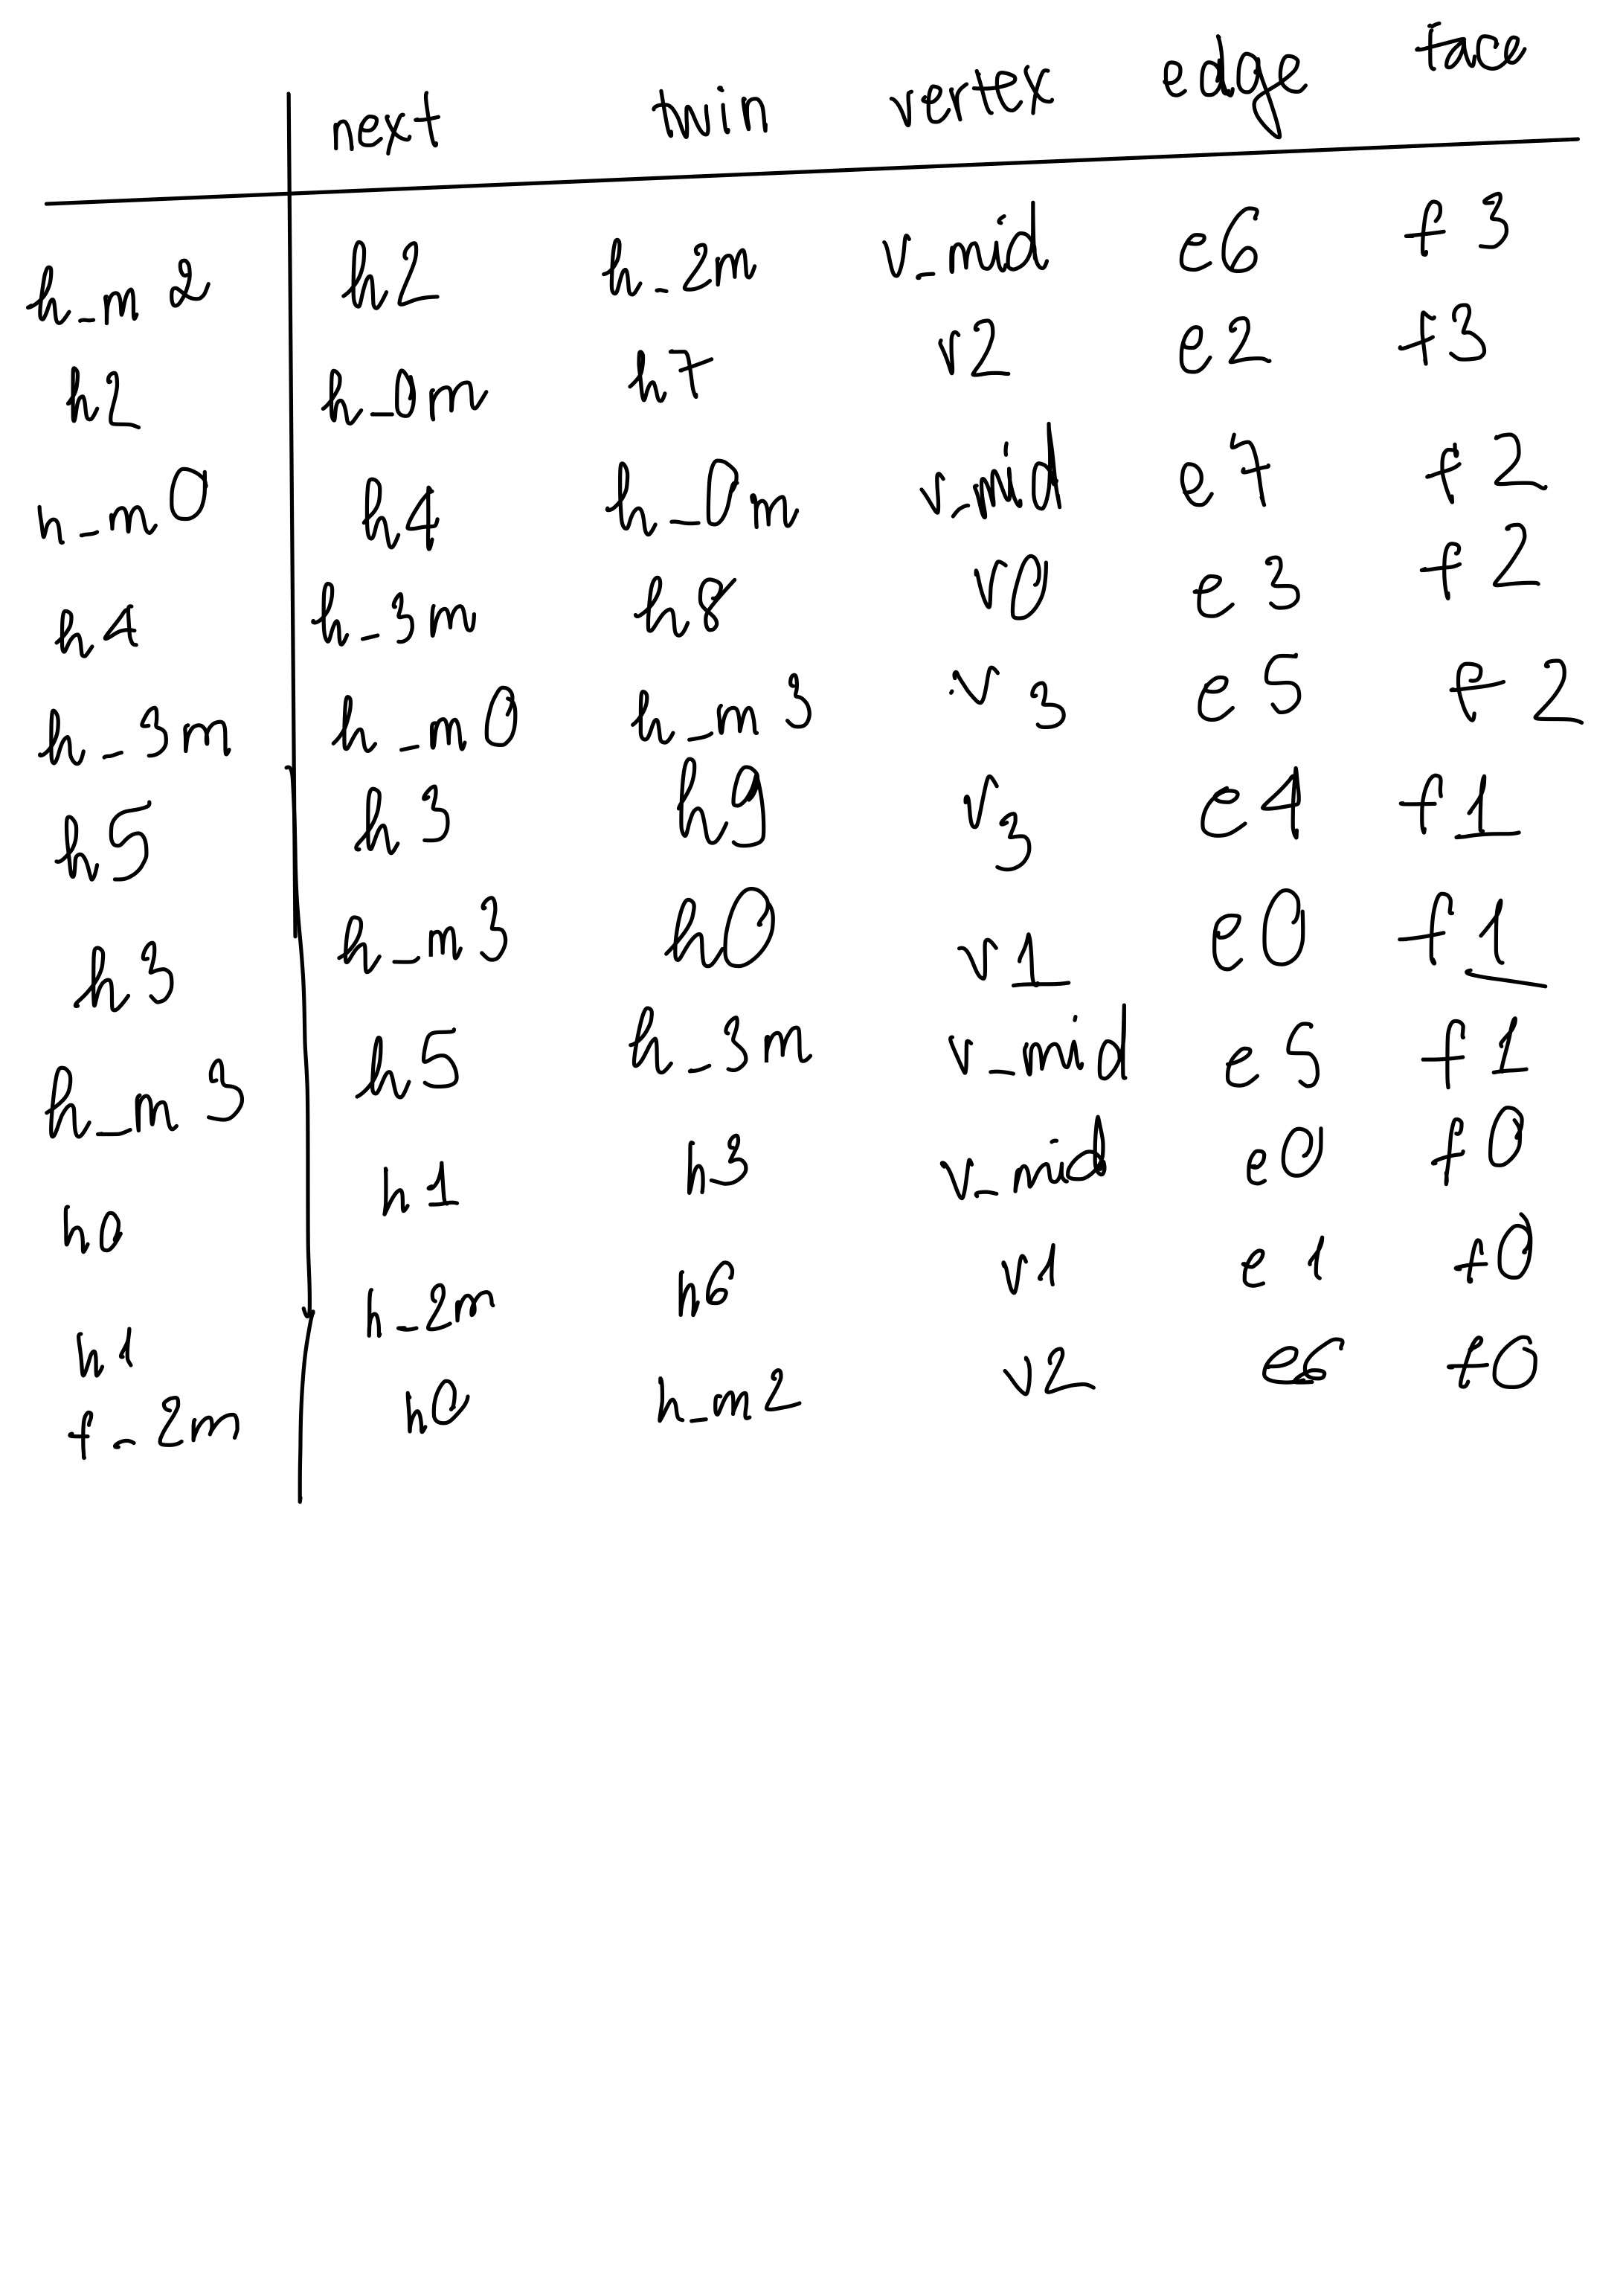 next twin vertex edge face
h_m2 h2 h_2m v_mid e6 f3
h2 h_0m h7 v2 e2 f3
h_m0 h4 h_0m v_mid e7 f2
h4 h_3m h8 v0 e3 f2
h_3m h_m0 h_m3 v3 e5 f2
h5 h3 h9 v3 e4 f1
h3 h_m3 h0 v1 e0 f1
h_m3 h5 h_3m v_mid e5 f1
h0 h1 h3 v_mid e0 f0
h1 h_2m h6 v1 e1 f0
f_2m h0 h_m2 v2 e6 f0